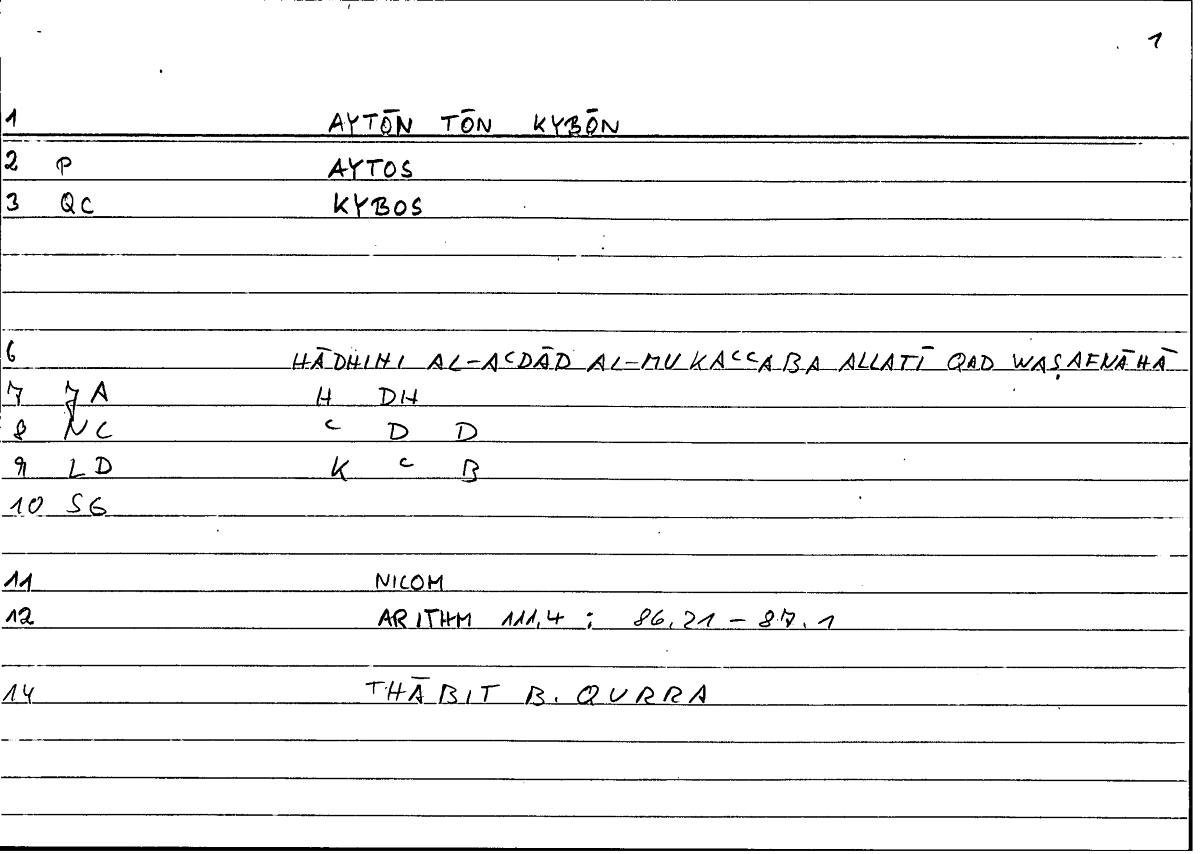 1
1 AYTŌN TŌN KYBŌN
2 P AYTOS
3 QC KYBOS
6 HĀDHIHI AL-AʿDĀD AL-MUKAʿʿABA ALLATĪ QAD WAṢAFNĀHĀ
7 JA H DH
8 NC ʿ D D
9 LD K ʿ B
10 SG
11 NICOM
12 ARITHM 111,4 : 86,21 - 87,1
14 THĀBIT B. QURRA